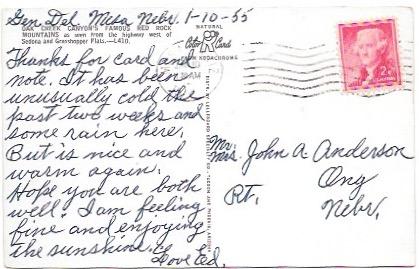 Gen. Del. Mesa Nebr. 1-10-55
OAK CREEK CANYON'S FAMOUS RED ROCK
MOUNTAINS as seen from the highway west of
Sedona and Grasshopper Flats.—L410.
Thanks for card and
note. It has been
unusually cold the
past two weeks and
some rain here.
But is nice and
warm again.
Hope you are both
well. I am feeling
fine and enjoying
the sunshine. Love Ed.
NATURAL
Color Card
KODACHROME
AM
2¢
Mr.
Mrs. John A. Anderson
Rt. Ong
Nebr.